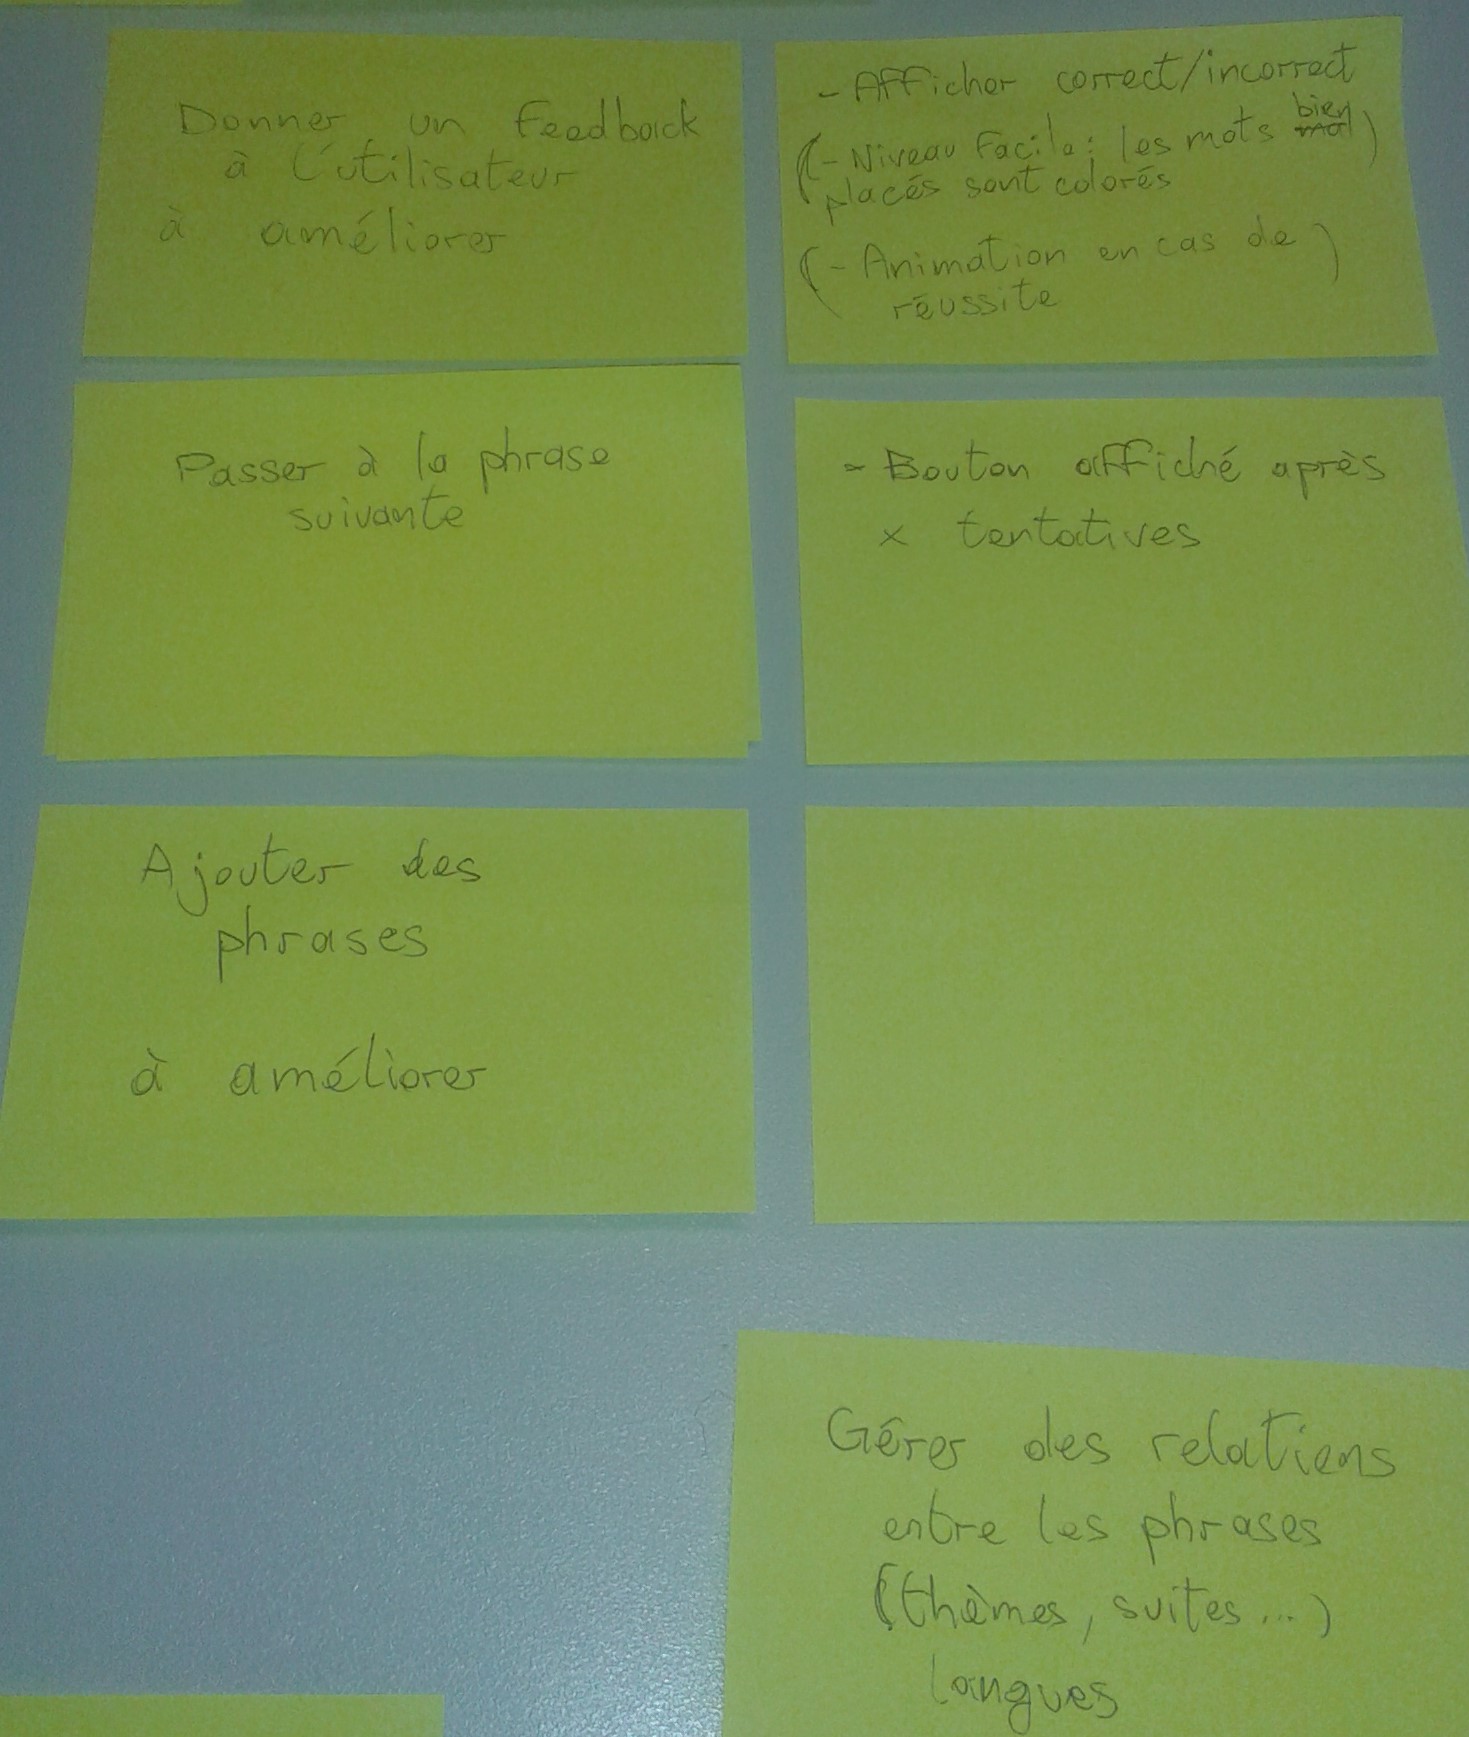 Donner un feedback
à l'utilisateur
à améliorer
- Afficher correct/incorrect
(- Niveau facile : les mots bien mal)
placés sont colorés
(- Animation en cas de)
réussite
Passer à la phrase
suivante
- Bouton affiché après
x tentatives
Ajouter des
phrases
à améliorer
Gérer des relations
entre les phrases
(thèmes, suites...)
langues